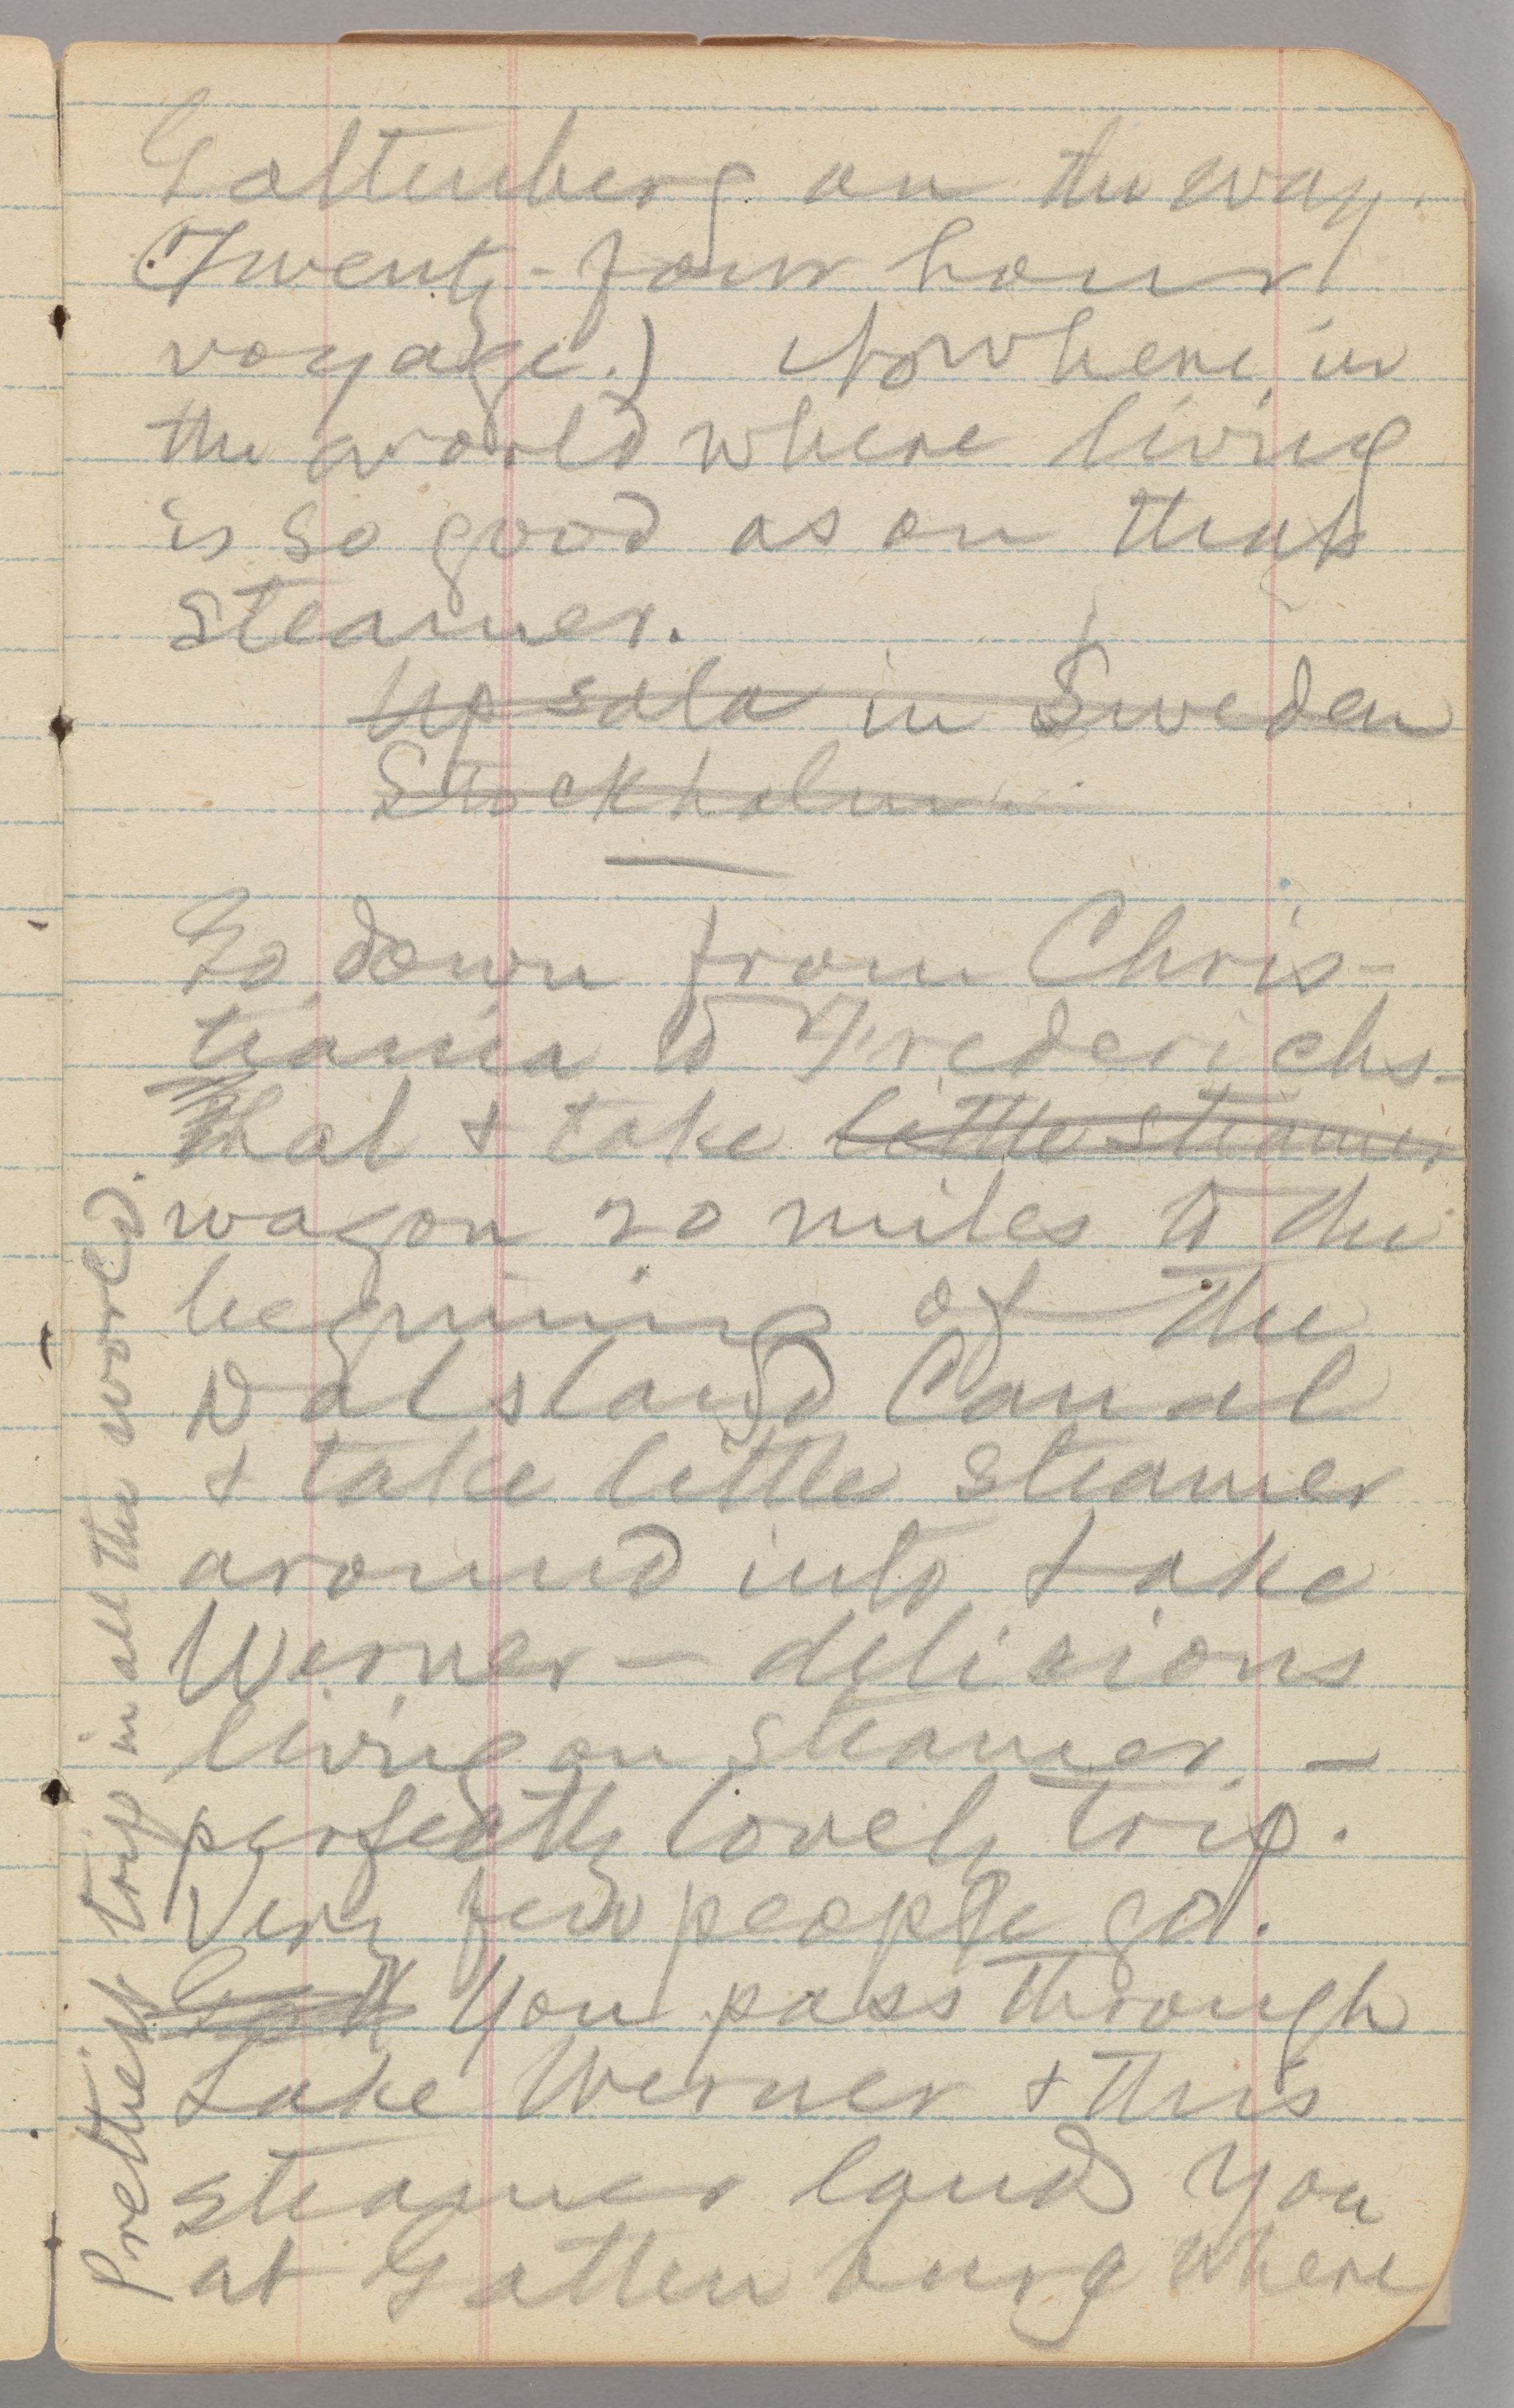 Gottenberg on the way.
(Twenty-four hour
voyage.) Nowhere in
the world where living
is so good as on that
steamer.
Upsala in Sweden
Stockholm
Go down from Chris-
tiania to Frederichs-
hal + take little steamer
wagon 20 miles to the
beginning of the
Dalsland Canal
+ take little steamer
around into Lake
Werner — delicious
living on steamer. —
perfectly lovely trip.
Very few people go.
You pass through
Lake Werner + this
steamer land you
at Gottenburg where
Prettiest trip in all the world.